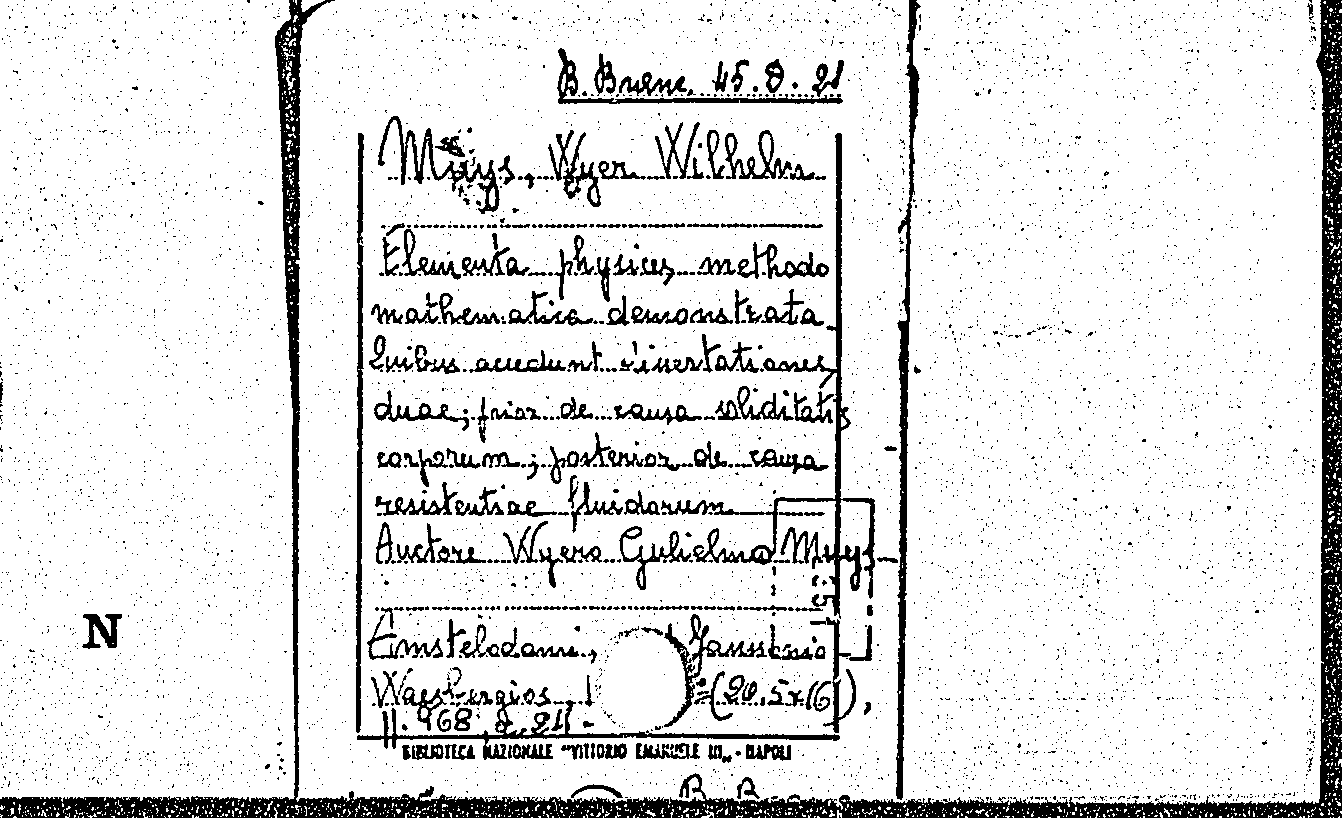 B. Brenc. 45.D.21
Muys, Wyer Wilhelm
Elementa physices methodo
mathematica demonstrata.
Quibus accedunt dissertationes
duae; prior de causa soliditatis
corporum; posterior de causa
resistentiae fluidorum
Auctore Wyero Gulielmo Muys
N
Amstelodami, Janssonio
Waesbergios, (20,5x16),
pp. 968, 8, 24.
BIBLIOTECA NAZIONALE "VITTORIO EMANUELE III" - NAPOLI